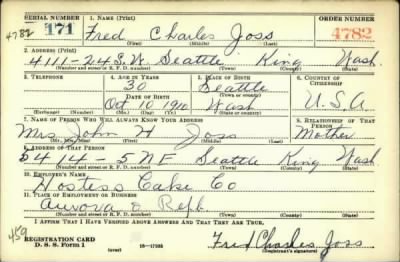 SERIAL NUMBER
1. NAME (Print)
ORDER NUMBER
4782
171
Fred Charles Joss
4782
(First) (Middle) (Last)
2. ADDRESS (Print)
4111-24 S.W. Seattle King Wash.
(Number and street or R. F. D. number) (Town) (County) (State)
3. TELEPHONE
4. AGE IN YEARS
5. PLACE OF BIRTH
6. COUNTRY OF CITIZENSHIP
30
Seattle
(Town or county)
DATE OF BIRTH
Oct 10 1910
Wash
U.S.A
(Exchange) (Number)
(Mo.) (Day) (Yr.)
(State or country)
7. NAME OF PERSON WHO WILL ALWAYS KNOW YOUR ADDRESS
8. RELATIONSHIP OF THAT PERSON
Mrs John H Joss
Mother
(Mr., Mrs., Miss) (First) (Middle) (Last)
9. ADDRESS OF THAT PERSON
5414-5 NE Seattle King Wash
(Number and street or R. F. D. number) (Town) (County) (State)
10. EMPLOYER'S NAME
Hostess Cake Co
11. PLACE OF EMPLOYMENT OR BUSINESS
Aurora & Repb.
(Number and street or R. F. D. number) (Town) (County) (State)
I AFFIRM THAT I HAVE VERIFIED ABOVE ANSWERS AND THAT THEY ARE TRUE.
459
REGISTRATION CARD
D. S. S. Form 1
(over)
Fred Charles Joss
(Registrant's signature)